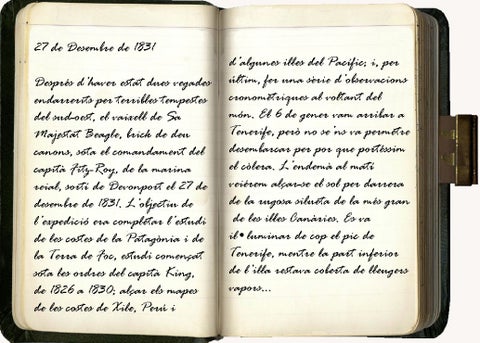 27 de Desembre de 1831
Després d'haver estat dues vegades
endarrerits per terribles tempestes
del sud-oest, el vaixell de Sa
Majestat Beagle, brick de deu
canons, sota el comandament del
capità Fitz-Roy, de la marina
reial, sortí de Devonport el 27 de
desembre de 1831. L'objectiu de
l'expedició era completar l'estudi
de les costes de la Patagònia i de
la Terra de Foc, estudi començat
sota les ordres del capità King,
de 1826 a 1830; alçar els mapes
de les costes de Xile, Perú i
d'algunes illes del Pacífic; i, per
últim, fer una sèrie d'observacions
cronomètriques al voltant del
món. El 6 de gener vam arribar a
Tenerife, però no se'ns va permetre
desembarcar per por que portéssim
el còlera. L'endemà al matí
veiérem alçar-se el sol per darrera
de la rugosa silueta de la més gran
de les illes Canàries. Es va
il•luminar de cop el pic de
Tenerife, mentre la part inferior
de l'illa restava coberta de lleugers
vapors...